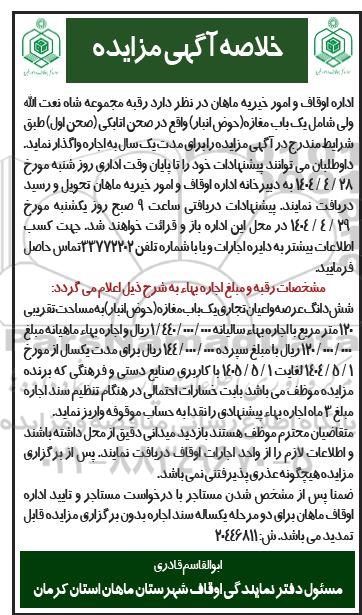 خلاصه آگهی مزایده
اداره اوقاف و امور خیریه ماهان در نظر دارد رقبه مجموعه شاه نعت الله
ولی شامل یک باب مغازه(حوض انبار) واقع در صحن اتابکی (صحن اول) طبق
شرایط مندرج در آگهی مزایده را برای مدت یک سال به اجاره واگذار نماید.
داوطلبان می توانند پیشنهادات خود را تا پایان وقت اداری روز شنبه مورخ
۱۴۰۴/۴/۲۸ به دبیرخانه اداره اوقاف و امور خیریه ماهان تحویل و رسید
دریافت نمایند. پیشنهادات دریافتی ساعت ۹ صبح روز یکشنبه مورخ
۱۴۰۴/۴/۲۹ در محل این اداره باز و قرائت خواهند شد. جهت کسب
اطلاعات بیشتر به دایره اجارات و یا با شماره تلفن ۳۳۷۷۲۲۰۲ تماس حاصل
فرمایید.
مشخصات رقبه و مبلغ اجاره بهاء به شرح ذیل اعلام می گردد:
شش دانگ عرصه و اعیان تجاری یک باب مغازه (حوض انبار) به مساحت تقریبی
۱۲۰ متر مربع با اجاره بهاء سالیانه ۱/۴۴۰/۰۰۰/۰۰۰ ریال و اجاره بهاء ماهیانه مبلغ
۱۲۰/۰۰۰/۰۰۰ ریال با مبلغ سپرده ۱۴۴/۰۰۰/۰۰۰ ریال برای مدت یکسال از مورخ
۱۴۰۴/۵/۱ لغایت ۱۴۰۵/۵/۱ با کاربری صنایع دستی و فرهنگی که برنده
مزایده موظف می باشد بابت خسارات احتمالی در هنگام تنظیم سند اجاره
مبلغ ۳ ماه اجاره بهاء پیشنهادی را نقدا به حساب موقوفه واریز نماید.
متقاضیان محترم موظف هستند بازدید میدانی دقیق از محل داشته باشند
و اطلاعات لازم را از واحد اجارات اوقاف دریافت نمایند. پس از برگزاری
مزایده هیچگونه عذری پذیرفتنی نمی باشد.
ضمنا پس از مشخص شدن مستاجر با درخواست مستاجر و تایید اداره
اوقاف ماهان برای دو مرحله یکساله سند اجاره بدون برگزاری مزایده قابل
تمدید می باشد. ش: ۲۰۴۴۶۸۱۱
ابوالقاسم قادری
مسئول دفتر نمایندگی اوقاف شهرستان ماهان استان کرمان